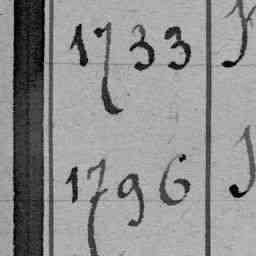 1733
1796